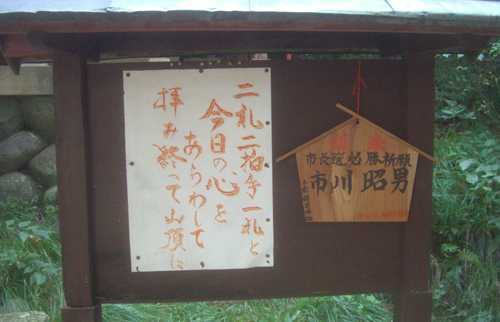 二礼二拍手一礼と
今日の心を
あらわして
拝み終って山頂に
市長選必勝祈願
市川昭男